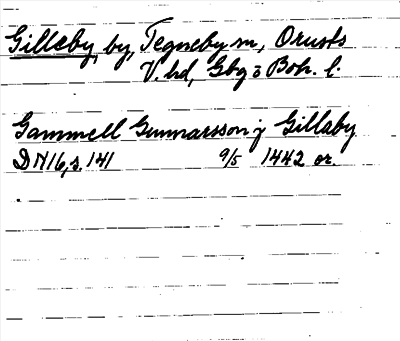 Gilleby, by, Tegneby sn, Orusts
V. hd, Gbg o Boh. l.
Gammell Gunnarsson j Gillaby
DN 16, s. 141 9/5 1442 or.